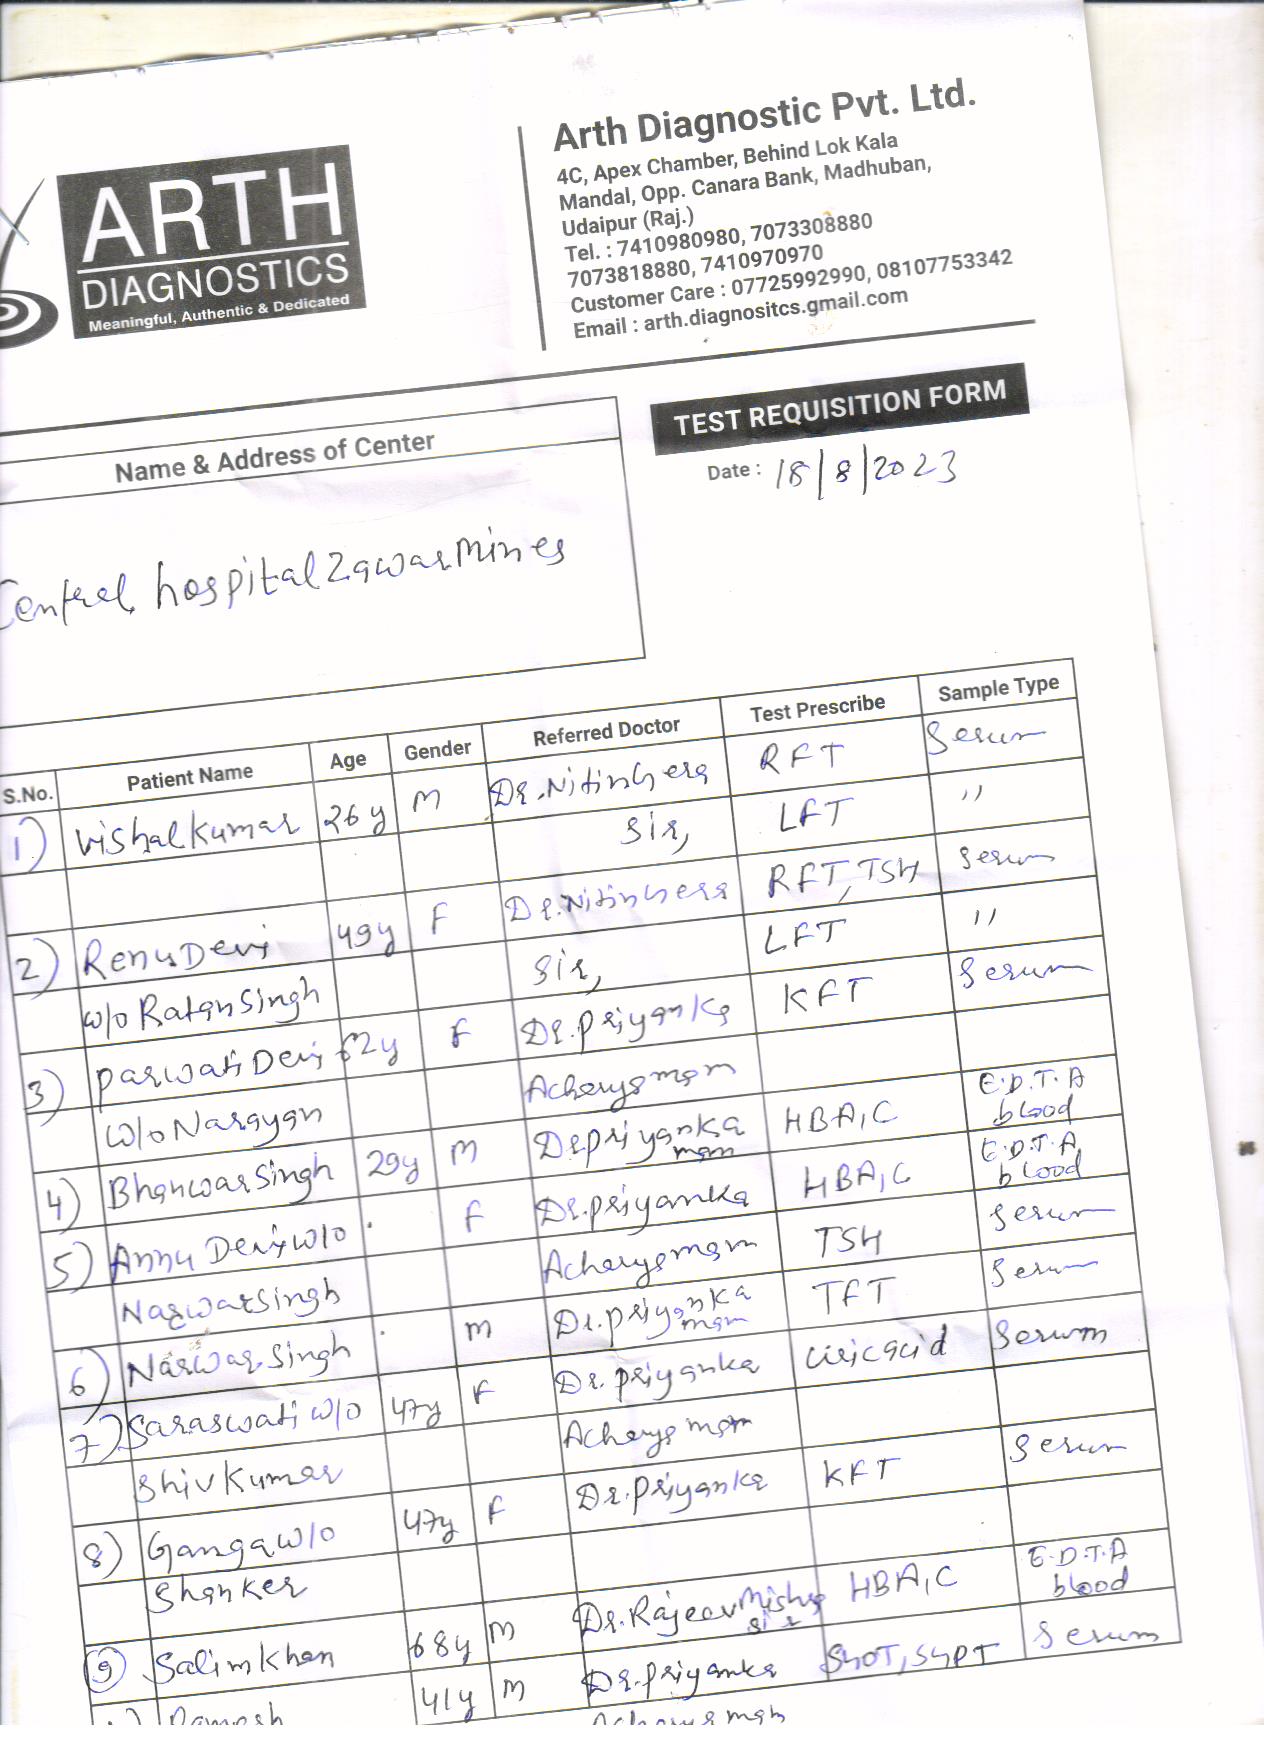 ARTH
DIAGNOSTICS
Meaningful, Authentic & Dedicated
Arth Diagnostic Pvt. Ltd.
4C, Apex Chamber, Behind Lok Kala
Mandal, Opp. Canara Bank, Madhuban,
Udaipur (Raj.)
Tel. : 7410980980, 7073308880
7073818880, 7410970970
Customer Care : 07725992990, 08107753342
Email : arth.diagnositcs.gmail.com
TEST REQUISITION FORM
Date : 18/8/2023
Name & Address of Center
Central hospital Zawar Mines
S.No. Patient Name Age Gender Referred Doctor Test Prescribe Sample Type
1) Vishal Kumar 26y M Dr. Nitin RFT Serum
Sir, LFT ''
2) Renu Devi 49y F Dr. Nitin RFT, TSH Serum
w/o Ratan Singh Sir, LFT ''
3) Parwati Devi 62y F Dr. Priyanka KFT Serum
w/o Narayan Acharya mam
4) Bhanwar Singh 29y M Dr Priyanka mam HBA1C E.D.T.A blood
5) Annu Devi w/o F Dr. Priyanka HBA1C E.D.T.A blood
Narwar Singh Acharya mam TSH Serum
6) Narwar Singh M Dr. Priyanka mam TFT Serum
7) Saraswati w/o 47y F Dr. Priyanka Uric acid Serum
Shiv Kumar Acharya mam
8) Ganga w/o 47y F Dr. Priyanka KFT Serum
Shanker
9) Salim Khan 68y M Dr. Rajeev Mishra sir HBA1C E.D.T.A blood
Ramesh 41y M Dr. Priyanka SGOT, SGPT Serum
Acharya mam